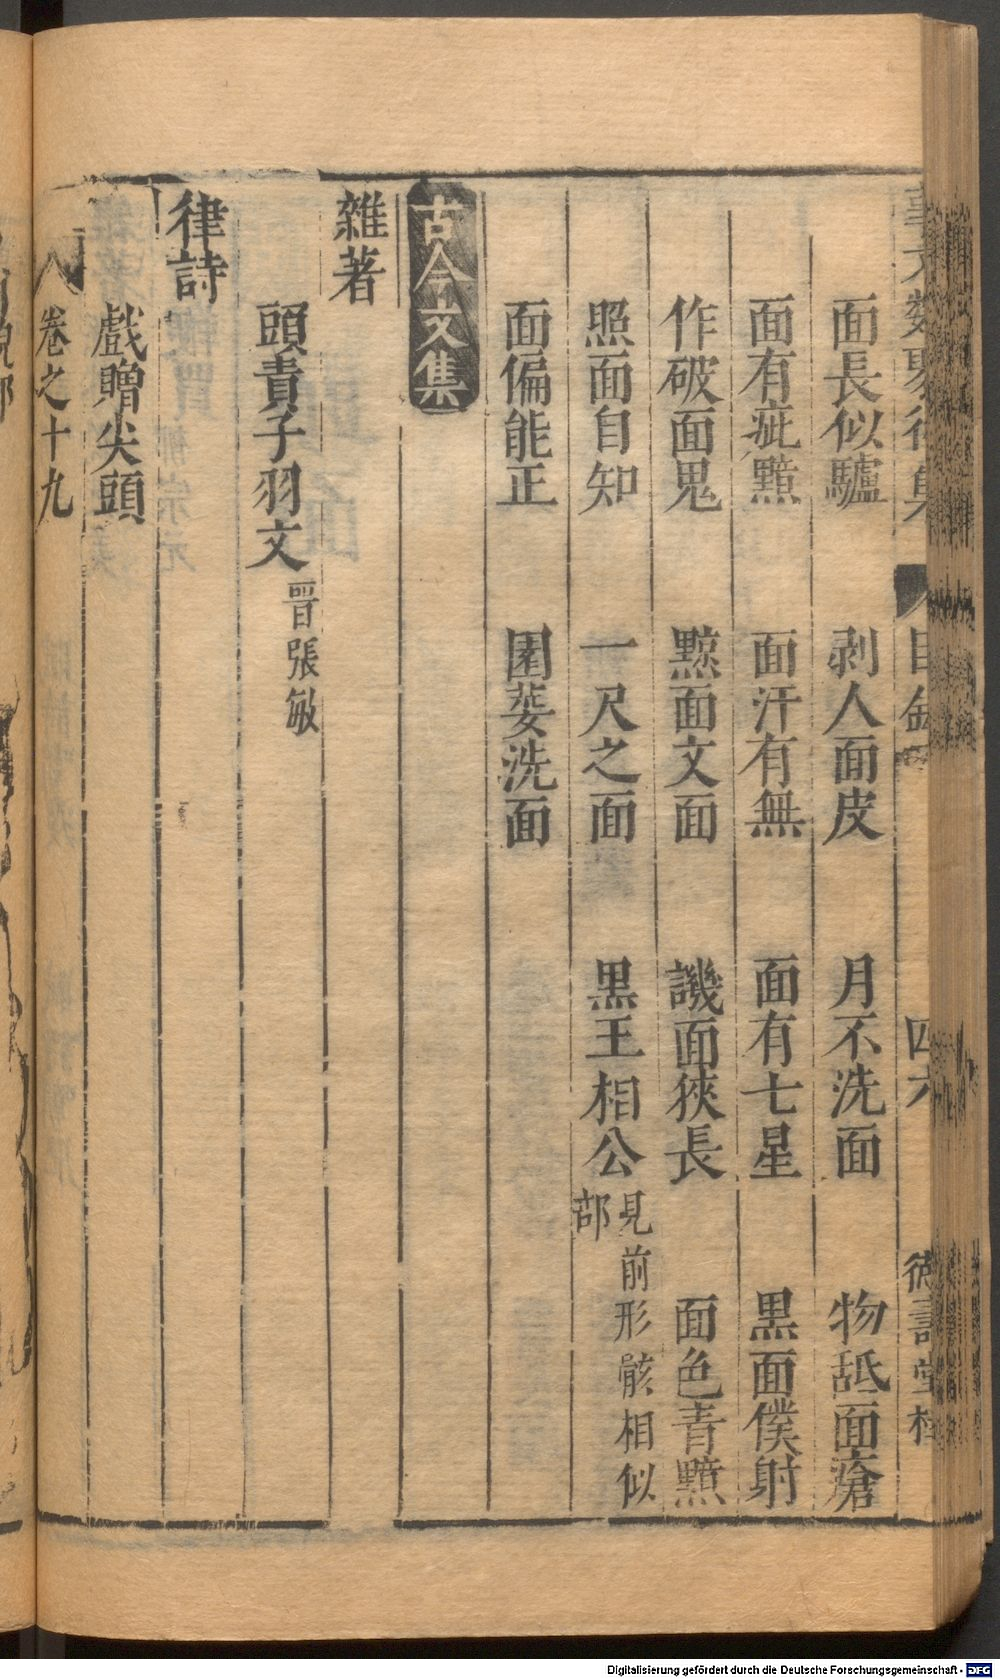 事文類聚後集 目錄 四六 德壽堂梓
面長似驢 剥人面皮 月不洗面 物舐面瘡
面有疵黶 面汗有無 面有七星 黒面僕射
作破面鬼 黥面文面 譏面狹長 面色青黶
照面自知 一尺之面 黒王相公 見前形骸相似部
面偏能正 園荽洗面
古今文集
雜著
頭責子羽文 晋張敏
律詩
戲贈尖頭
卷之十九
Digitalisierung gefördert durch die Deutsche Forschungsgemeinschaft - DFG